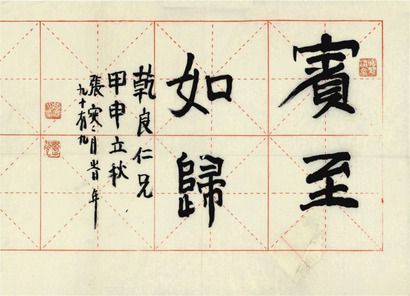 賓至
如歸
乾良仁兄
甲申立秋
張寒月時年
九十有九